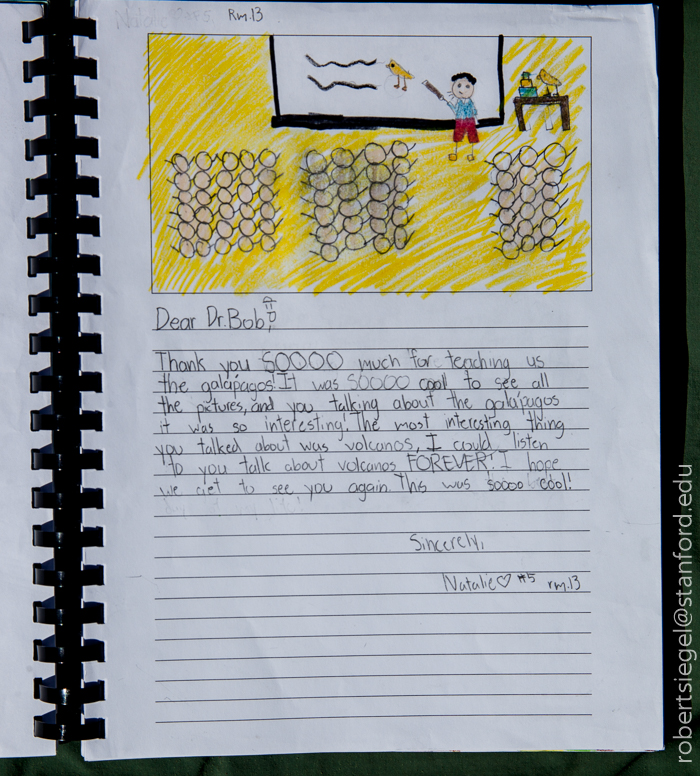 Natalie #5 Rm.13
Dear Dr.Bob,
Thank you SOOOO much for teaching us
the galápagos! It was SOOOO cool to see all
the pictures, and you talking about the galápagos
it was so interesting. The most interesting thing
you talked about was volcanos, I could listen
to you talk about volcanos FOREVER! I hope
we get to see you again. This was soooo cool!
Sincerely,
Natalie♡ #5 rm.13
robertsiegel@stanford.edu